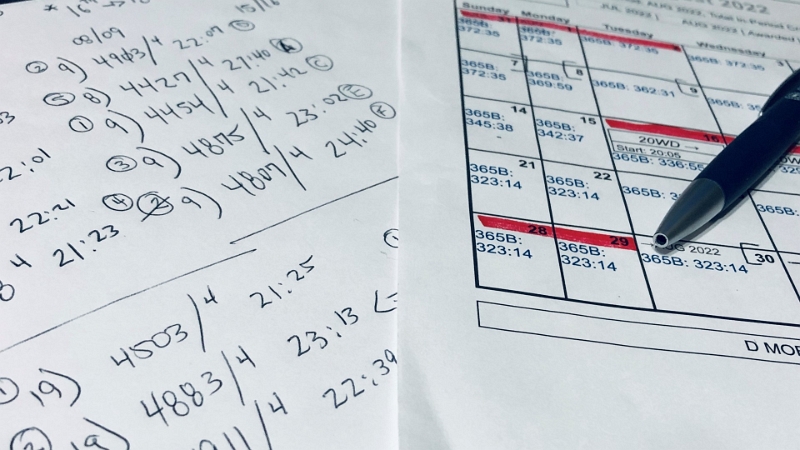 * 16
08/09
② 9) 4903/4 22:09 ⑤
⑤ 8) 4427/4 21:40 Ⓐ
① 9) 4454/4 21:42 Ⓒ
③ 9) 4875/4 23:02 Ⓔ
④ ② 9) 4807/4 24:40
22:01
22:21
4 21:23
① 19) 4503/4 21:25
② 19) 4883/4 23:13
4911/4 22:39
2022
AUG 2022
Sunday Monday Tuesday Wednesday
31 1 3
365B: 372:35 365B: 372:35 365B: 372:35 365B: 372:35
7 8 9
365B: 372:35 365B: 369:59 365B: 362:31
14 15 16
365B: 345:38 365B: 342:37 20WD → Start: 20:05 365B: 336:56
21 22
365B: 323:14 365B: 323:14
28 29 30
365B: 323:14 365B: 323:14 2022 365B: 323:14
D MOR